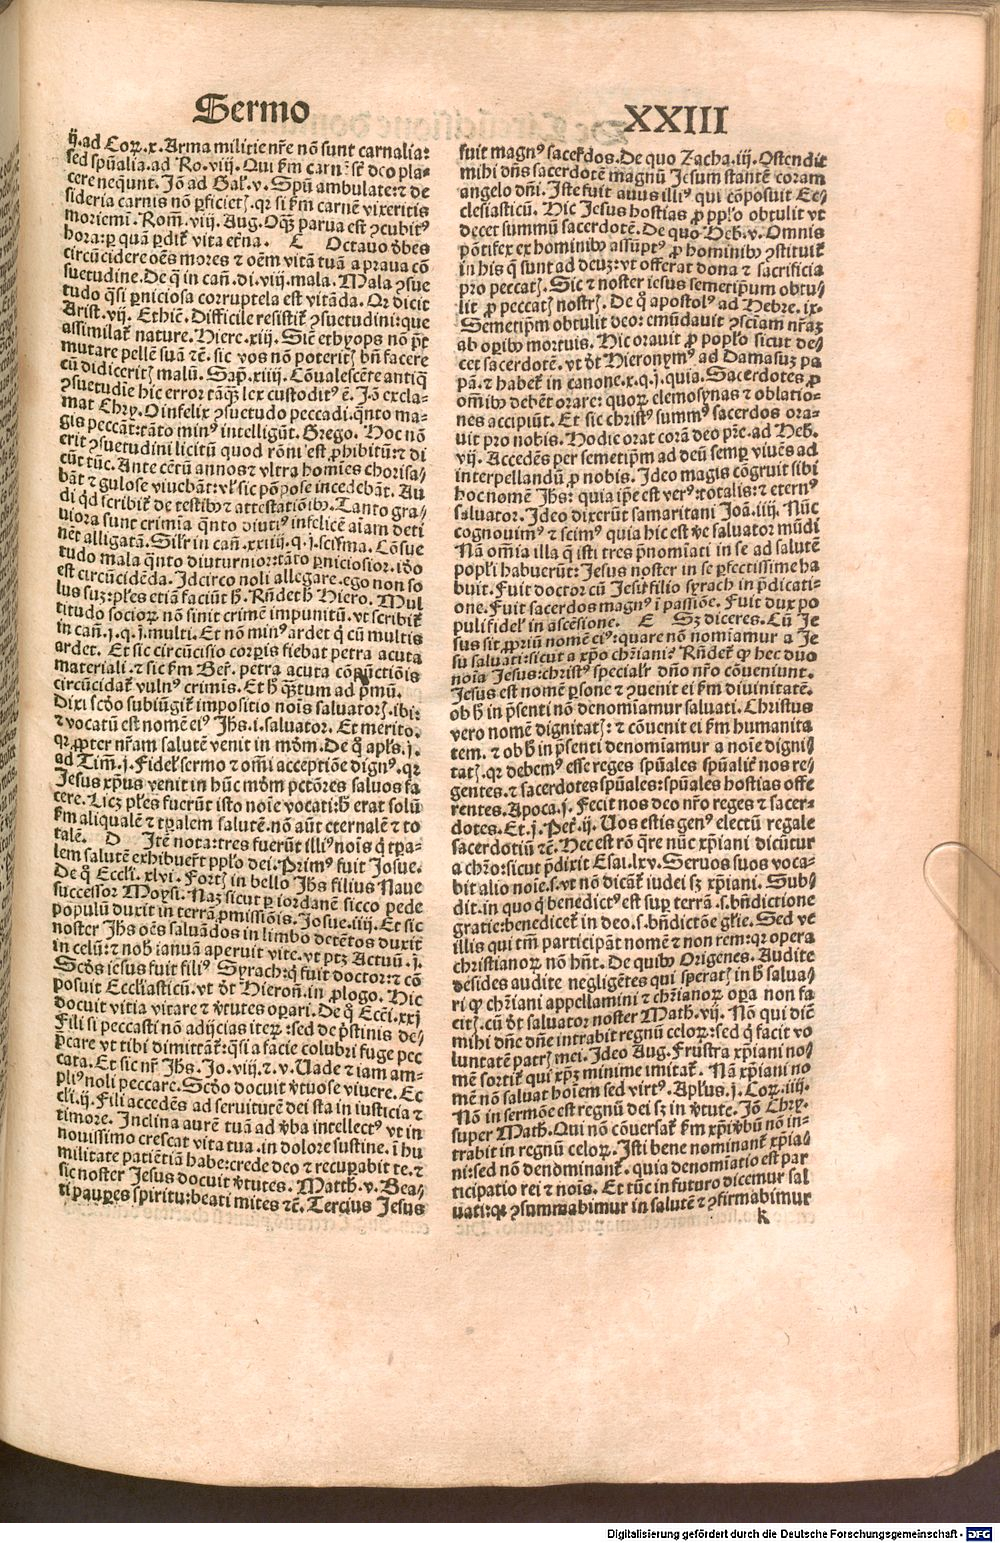 Sermo XXIII
ij. ad Coꝝ. x. Arma militie nr̄e nō sunt carnalia:
sed spūalia. ad Ro. viij. Qui ẜm carnē sūt deo pla-
cere neqūnt. Jō ad Gal̄. v. Spū ambulate: ⁊ de
sideria carnis nō ꝑficietꝭ. qꝛ si ẜm carnē vixeritis
moriemī. Rom̄. viij. Aug. Oqꝫ parua est ꝯcubitꝰ
hora: ꝑ quā ꝑdit̄ vita et̄na. C Octauo d̄bes
circūcidere oēs mores ⁊ oēm vitā tuā a praua cō
suetudine. De q̄ in cañ. di. viij. mala. Mala ꝯsue
tudo q̄si ꝑniciosa corruptela est vitāda. Qꝛ dicit
Arist. vij. Ethic̄. Difficile resistit̄ ꝯsuetudini: que
assimilat̄ nature. Hiere. xiij. Sic̄ ethyops nō pōt
mutare pellē suā ⁊c̄. sic vos nō poteritꝭ bn̄ facere
cū didiceritꝭ malū. Sap̄. xiiij. Cōualescēte antiq̄
ꝯsuetudīe hic error tāqꝫ lex custoditꝰ ē. Jō excla-
mat Chrẏ. O infelix ꝯsuetudo peccadi. q̄nto ma-
gis peccāt: tāto minꝰ intelligūt. Grego. Hoc nō
erit ꝯsuetudini licitū quod rōni est ꝓhibitū: ⁊ di
cūt tūc. Ante cētū annos ⁊ vltra homīes chorisa/
bāt ⁊ gulose viuebāt: vl̄ sic pōpose incedebāt. Au
di qd̄ scribit̄ de testibꝰ ⁊ attestatiōibꝰ. Tanto gra/
uiora sunt crimīa q̄nto diutiꝰ infelicē aīam deti
nēt alligatā. Sil̄r in cañ. xxiiij. q. j. scisma. Cōsue
tudo mala q̄nto diuturnior: tāto ꝑniciosior. iō
est circūcidēda. Jdcirco noli allegare. ego non so
lus suꝫ: pl̄es etiā faciūt ꝧ. Rn̄det ꝧ Hiero. Mul
titudo socioꝝ nō sinit crimē impunitū. vt scribit̄
in cañ. j. q. j. multi. Et nō minꝰ ardet q̄ cū multis
ardet. Et sic circūcisio corꝑis fiebat petra acuta
materiali. ⁊ sic ẜm Ber̄. petra acuta cōpūctiōis
circūcidat̄ vulnꝰ crimis. Et ꝧ q̄stum ad p̄mū.
Dixi scd̄o subiūgit̄ impositio nois saluatorꝭ. ibi:
⁊ vocatū est nomē eiꝰ Jhs. i. saluator. Et merito.
qꝛ ꝓpter nr̄am salutē venit in mōm. De q̄ apl̄s. j.
ad Tim̄. j. Fidel̄ sermo ⁊ omī acceptiōe dignꝰ. qꝛ
Jesus xp̄us venit in hūc mōm pctōres saluos fa
cere. Licꝫ pl̄es fuerūt isto noīe vocati: ꝧ erat solū
ẜm aliqualē ⁊ tꝑalem salutē. nō aūt eternalē ⁊ to
talē. D Jtē nota: tres fuerūt illiꝰ nois q̄ tꝑa-
lem salutē exhibuer̄t pp̄lo dei. Primꝰ fuit Josue.
De q̄ Eccl̄i. xlvi. Fortꝭ in bello Jhs filius Naue
successor Moysi. Naꝫ sicut ꝑ iordanē sicco pede
populū duxit in terrā ꝓmissiōis. Josue. iiij. Et sic
noster Jhs oēs saluādos in limbo detētos duxit
in celū: ⁊ nobꝭ ianuā aperuit vite. vt ptꝫ Actuū. j.
Scd̄s iesus fuit filiꝰ Syrach: q̄ fuit doctor: ⁊ cō
posuit Eccl̄iasticū. vt d̄t Hieroñ. in ꝓlogo. Hic
docuit vitia vitare ⁊ v̄tutes oꝑari. De q̄ Eccī. xxj
Fili si peccasti nō adijcias iteꝝ: sed de p̄stinis de/
p̄care vt tibi dimittāt̄: q̄si a facie colubri fuge pec
cata. Et sic nr̄ Jhs. Jo. viij. ⁊. v. Uade ⁊ iam am-
pliꝰ noli peccare. Scd̄o docuit v̄tuose viuere. Ec
cli. ij. Fili accedēs ad seruiturē dei sta in iusticia ⁊
timore. Jnclina aurē tuā ad v̄ba intellectꝰ vt in
nouissimo crescat vita tua. in dolore sustine. ī hu
militate patiētiā habe: crede deo ⁊ recuꝑabit te. ⁊
sic noster Jesus docuit v̄tutes. Matth. v. Bea/
ti pauꝑes spiritu: beati mites ⁊c̄. Tercius Jesus
fuit magnꝰ sacerdos. De quo Zacha. iij. Ostendit
mihi dn̄s sacerdotē magnū Jesum stantē coram
angelo dn̄i. Jste fuit auus illiꝰ qui cōposuit Ec-
clesiasticū. Hic Jesus hostias ꝓ pp̄lo obtulit vt
decet summū sacerdotē. De quo Heb. v. Omnis
pōtifex ex hominibꝰ assūptꝰ ꝓ hominibꝰ ꝯstituit̄
in his q̄ sunt ad deuꝫ: vt offerat dona ⁊ sacrificia
pro peccatꝭ. Sic ⁊ noster iesus semetipsum obtu/
lit ꝓ peccatꝭ nostrꝭ. De q̄ apostolꝰ ad Hebre. ix.
Semetip̄m obtulit deo: emūdauit ꝯsciam nr̄aꝫ
ab oꝑibꝰ mortuis. Hic orauit ꝓ popl̄o sicut de/
cet sacerdotē. vt d̄t Hieronymꝰ ad Damasuꝫ pa
pā. ⁊ habet̄ in canone. x. q. j. quia. Sacerdotes ꝓ
omībꝰ debēt orare: quoꝝ elemosynas ⁊ oblatio-
nes accipiūt. Et sic christꝰ summꝰ sacerdos ora-
uit pro nobis. Hodie orat corā deo pr̄e. ad Heb.
vij. Accedēs per semetipm̄ ad deū semꝑ viuēs ad
interpellandū ꝓ nobis. Jdeo magis cōgruit sibi
hoc nomē Jhs: quia ip̄e est verꝰ: totalis: ⁊ eternꝰ
saluator. Jdeo dixerūt samaritani Joā. iiij. Nūc
cognouimꝰ ⁊ scimꝰ quia hic est v̄e saluator mūdi
Nā om̄ia illa q̄ isti tres p̄nomīati in se ad salutē
popl̄i habuerūt: Jesus noster in se ꝑfectissime ha
buit. Fuit doctor cū Jesu filio syrach in p̄dicati-
one. Fuit sacerdos magnꝰ ī passiōe. Fuit dux po
puli fidel̄ in ascēsione. E Sꝫ diceres. Cū Je
sus sit ꝓpriū nomē eiꝰ: quare nō nomīamur a Je
su saluati: sicut a xp̄o chr̄iani? Rn̄det̄ ꝙ hec duo
noīa Jesus: christꝰ specialr̄ dn̄o nr̄o cōueniunt.
Jesus est nomē ꝑsone ⁊ ꝯuenit ei ẜm diuinitatē.
ob ꝧ in p̄senti nō denomīamur saluati. Christus
vero nomē dignitatꝭ: ⁊ cōuenit ei ẜm humanita
tem. ⁊ ob ꝧ in p̄senti denomiamur a noīe digni/
tatꝭ. qꝛ debemꝰ esse reges spūales spūalit̄ nos re/
gentes. ⁊ sacerdotes spūales: spūales hostias offe
rentes. Apoca. j. Fecit nos deo nr̄o reges ⁊ sacer-
dotes. Et. j. Pet̄. ij. Uos estis genꝰ electū regale
sacerdotiū ⁊c̄. Hec est rō q̄re nūc xp̄iani dicūtur
a chr̄o: sicut p̄dixit Esai. lxv. Seruos suos voca-
bit alio noīe. s. vt nō dicāt̄ iudei sꝫ xp̄iani. Sub/
dit. in quo q̄ benedictꝰ est suꝑ terrā. s. bn̄dictione
gratie: benedicet̄ in deo. s. bn̄dictōe gl̄ie. Sed ve
illis qui tm̄ participāt nomē ⁊ non rem: qꝛ opera
christianoꝝ nō hn̄t. De quibꝰ Origenes. Audite
desides audite negligētes qui speratꝭ in ꝧ salua/
ri ꝙ chr̄iani appellamini ⁊ chr̄ianoꝝ oꝑa non fa
citꝭ. cū d̄t saluator noster Math. vij. Nō qui dic̄
mihi dn̄e dn̄e intrabit regnū celoꝝ: sed q̄ facit vo
luntatē patrꝭ mei. Jdeo Aug. Frustra xp̄iani no/
mē sortit̄ qui xp̄ꝫ minime imitat̄. Nā xp̄iani no
mē nō saluat hoīem sed virtꝰ. Apl̄us. j. Coꝝ. iiij.
Nō in sermōe est regnū dei sꝫ in v̄tute. Jō Chrẏ.
super Math. Qui nō cōuersat̄ ẜm xp̄i v̄bū nō in-
trabit in regnū celoꝝ. Jsti bene nominant̄ xp̄ia/
ni: sed nō denominant̄. quia denomīatio est par
ticipatio rei ⁊ nois. Et tūc in futuro dicemur sal
uati: qꝛ ꝯsummabimur in salutē ⁊ ꝯfirmabimur
k
Digitalisierung gefördert durch die Deutsche Forschungsgemeinschaft - DFG